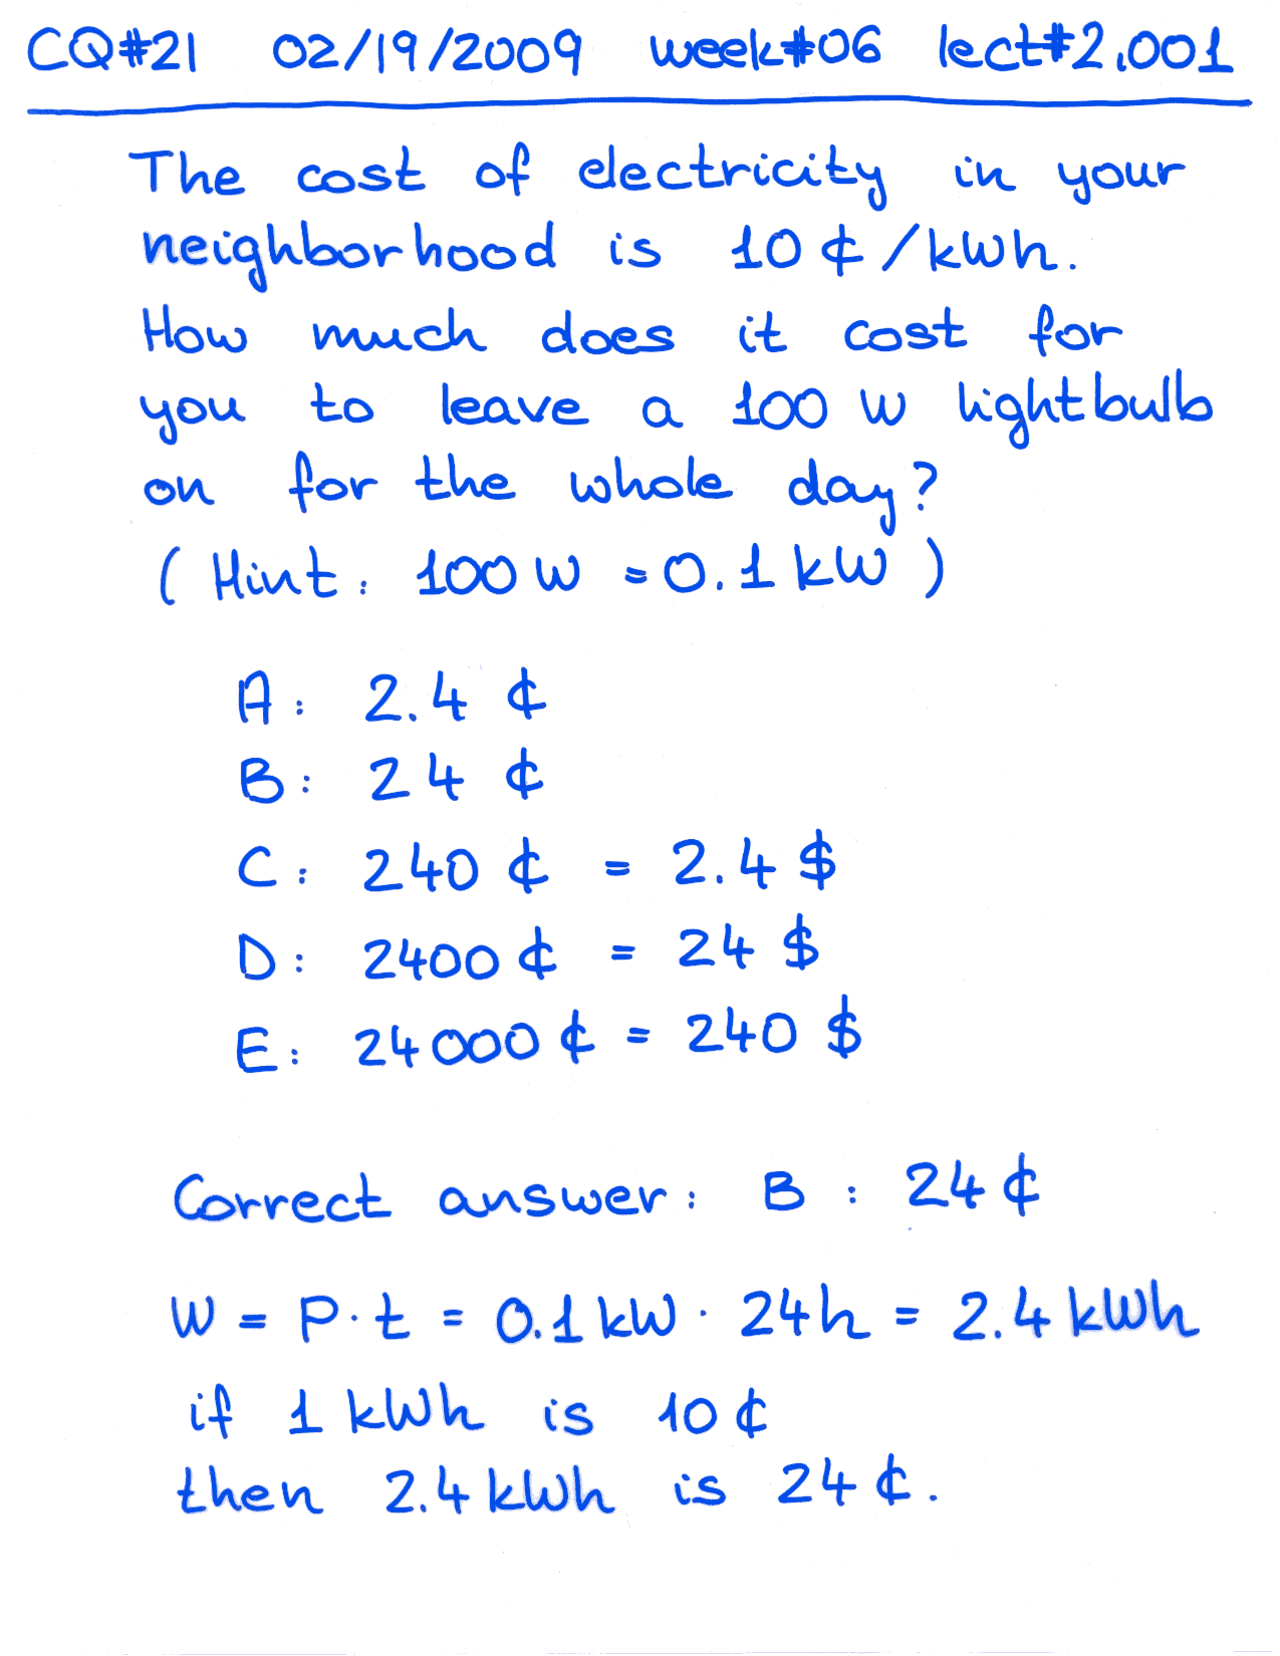 CQ#21 02/19/2009 week#06 lect#2.001
The cost of electricity in your
neighborhood is 10 ¢/kWh.
How much does it cost for
you to leave a 100 W lightbulb
on for the whole day?
(Hint: 100 W = 0.1 kW)
A: 2.4 ¢
B: 24 ¢
C: 240 ¢ = 2.4 $
D: 2400 ¢ = 24 $
E: 24000 ¢ = 240 $
Correct answer: B : 24 ¢
W = P·t = 0.1 kW · 24h = 2.4 kWh
if 1 kWh is 10 ¢
then 2.4 kWh is 24 ¢.